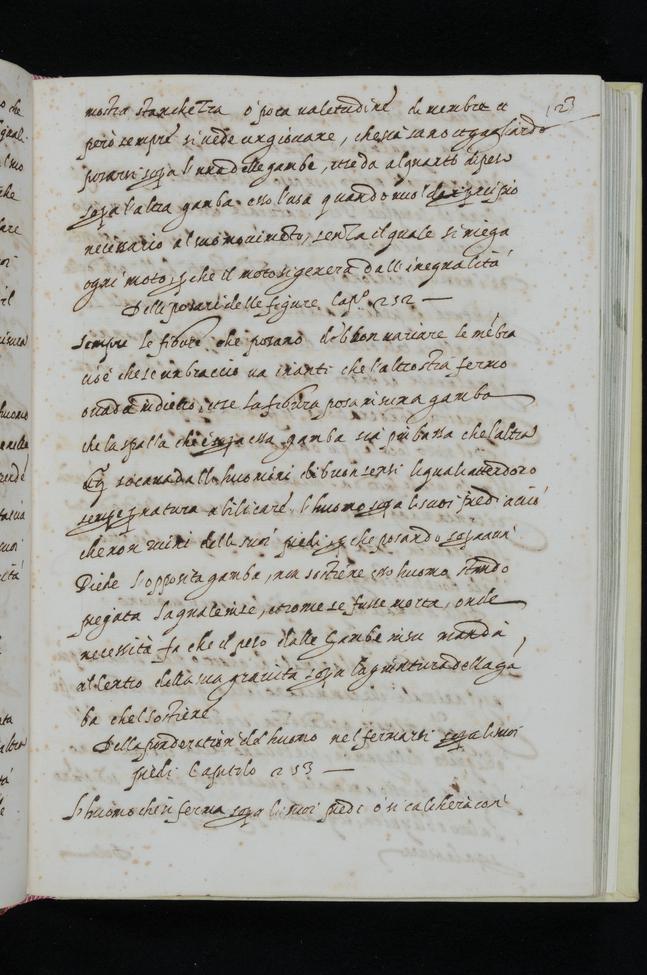 123
mostra stanchezza ò poca ualetudine di membra et
però sempre si uede un giouane, che sia sano et gagliardo
posarsi sopra l'una delle gambe, et se da alquanto di peso
sopra l'altra gamba esso l'usa quando uuol dar principio
necessario al suo mouimento, senza il quale si niega
ogni moto, per che il moto si genera dall'inequalità
Delli posari delle figure Cap.º 252 —
Sempre le figure che posano debbon uariare le mēbra
cioè che se un braccio ua inanti che l'altro stia fermo
o uada indietro, et se la figura posa in su una gamba
che la spalla ch'è in su essa gamba sia più bassa che l'altra
et si caua dalli huomini di buon sensi li quali attendono
sempre per natura à bilicare l'huomo sopra li suoi piedi acciò
che non ruini delli suoi piedi, per che posando sopra un'
Piede l'opposita gamba, non sostiene esso huomo stando
piegata la quale in se, et come se fusse morta, onde
necessità fa che il peso dalle gambe in su manda
al Centro della sua grauità sopra la giuntura della gā
ba che'l sostiene
Della ponderation del huomo nel fermarsi sopra li suoi
piedi Capitolo 253 —
L'huomo che si ferma sopra li suoi piedi o si calcherà con